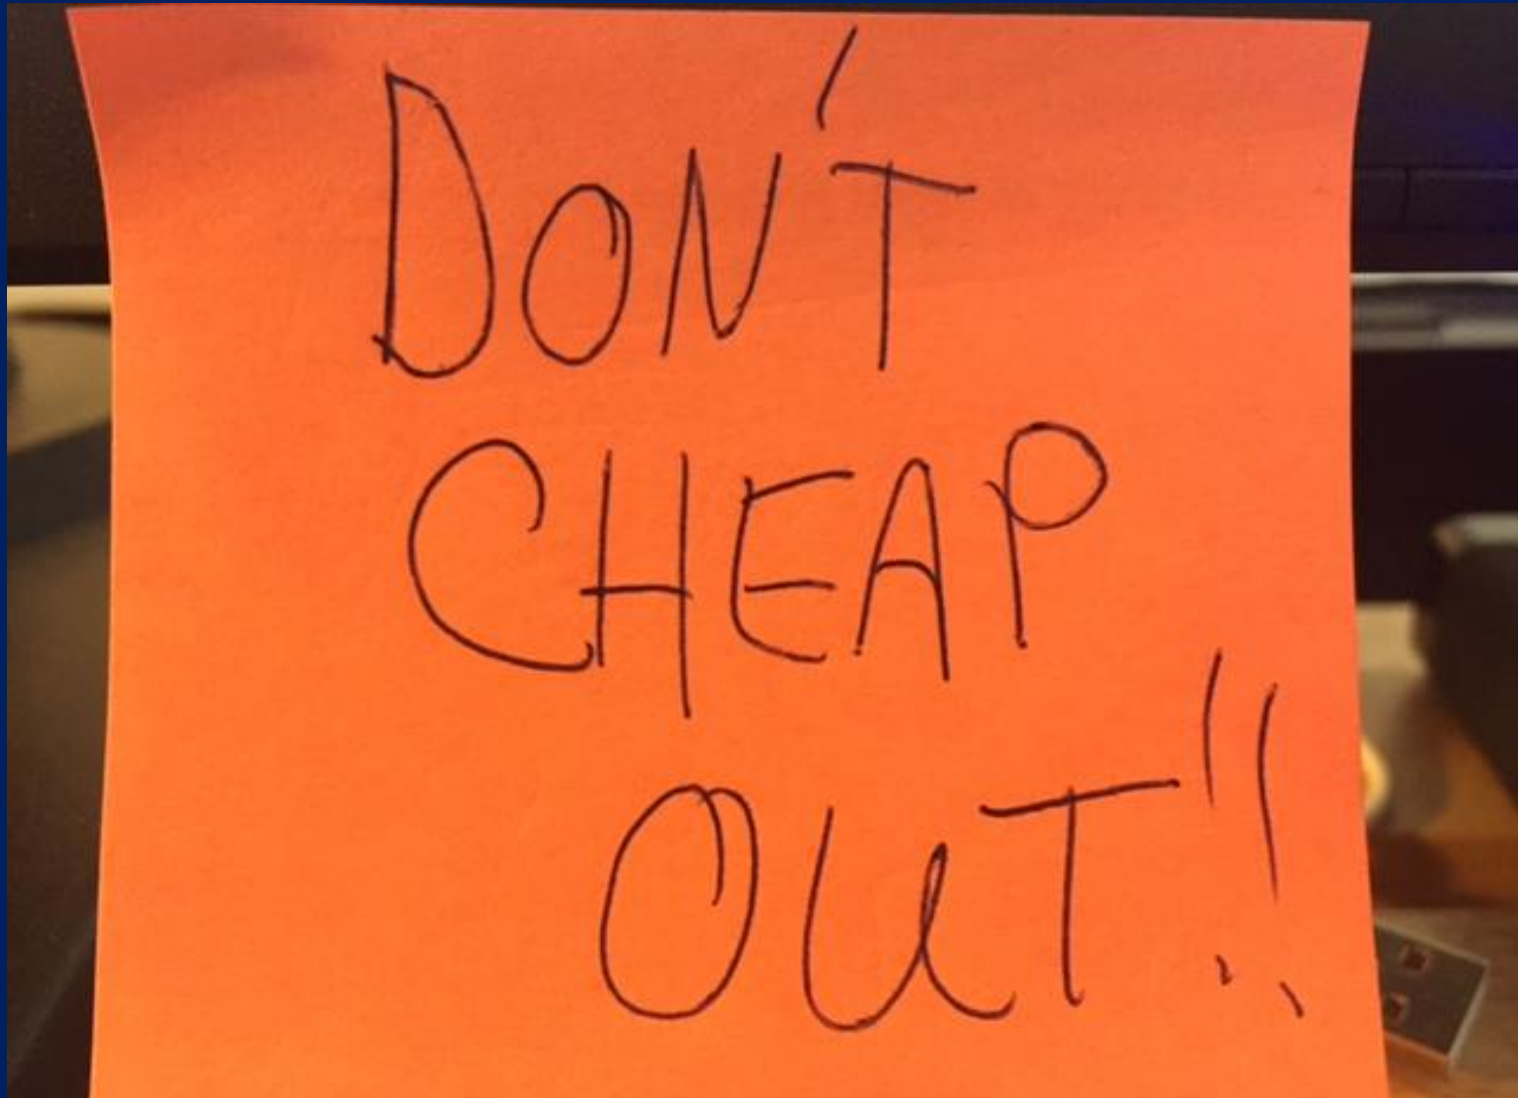 DON'T
CHEAP
OUT!!